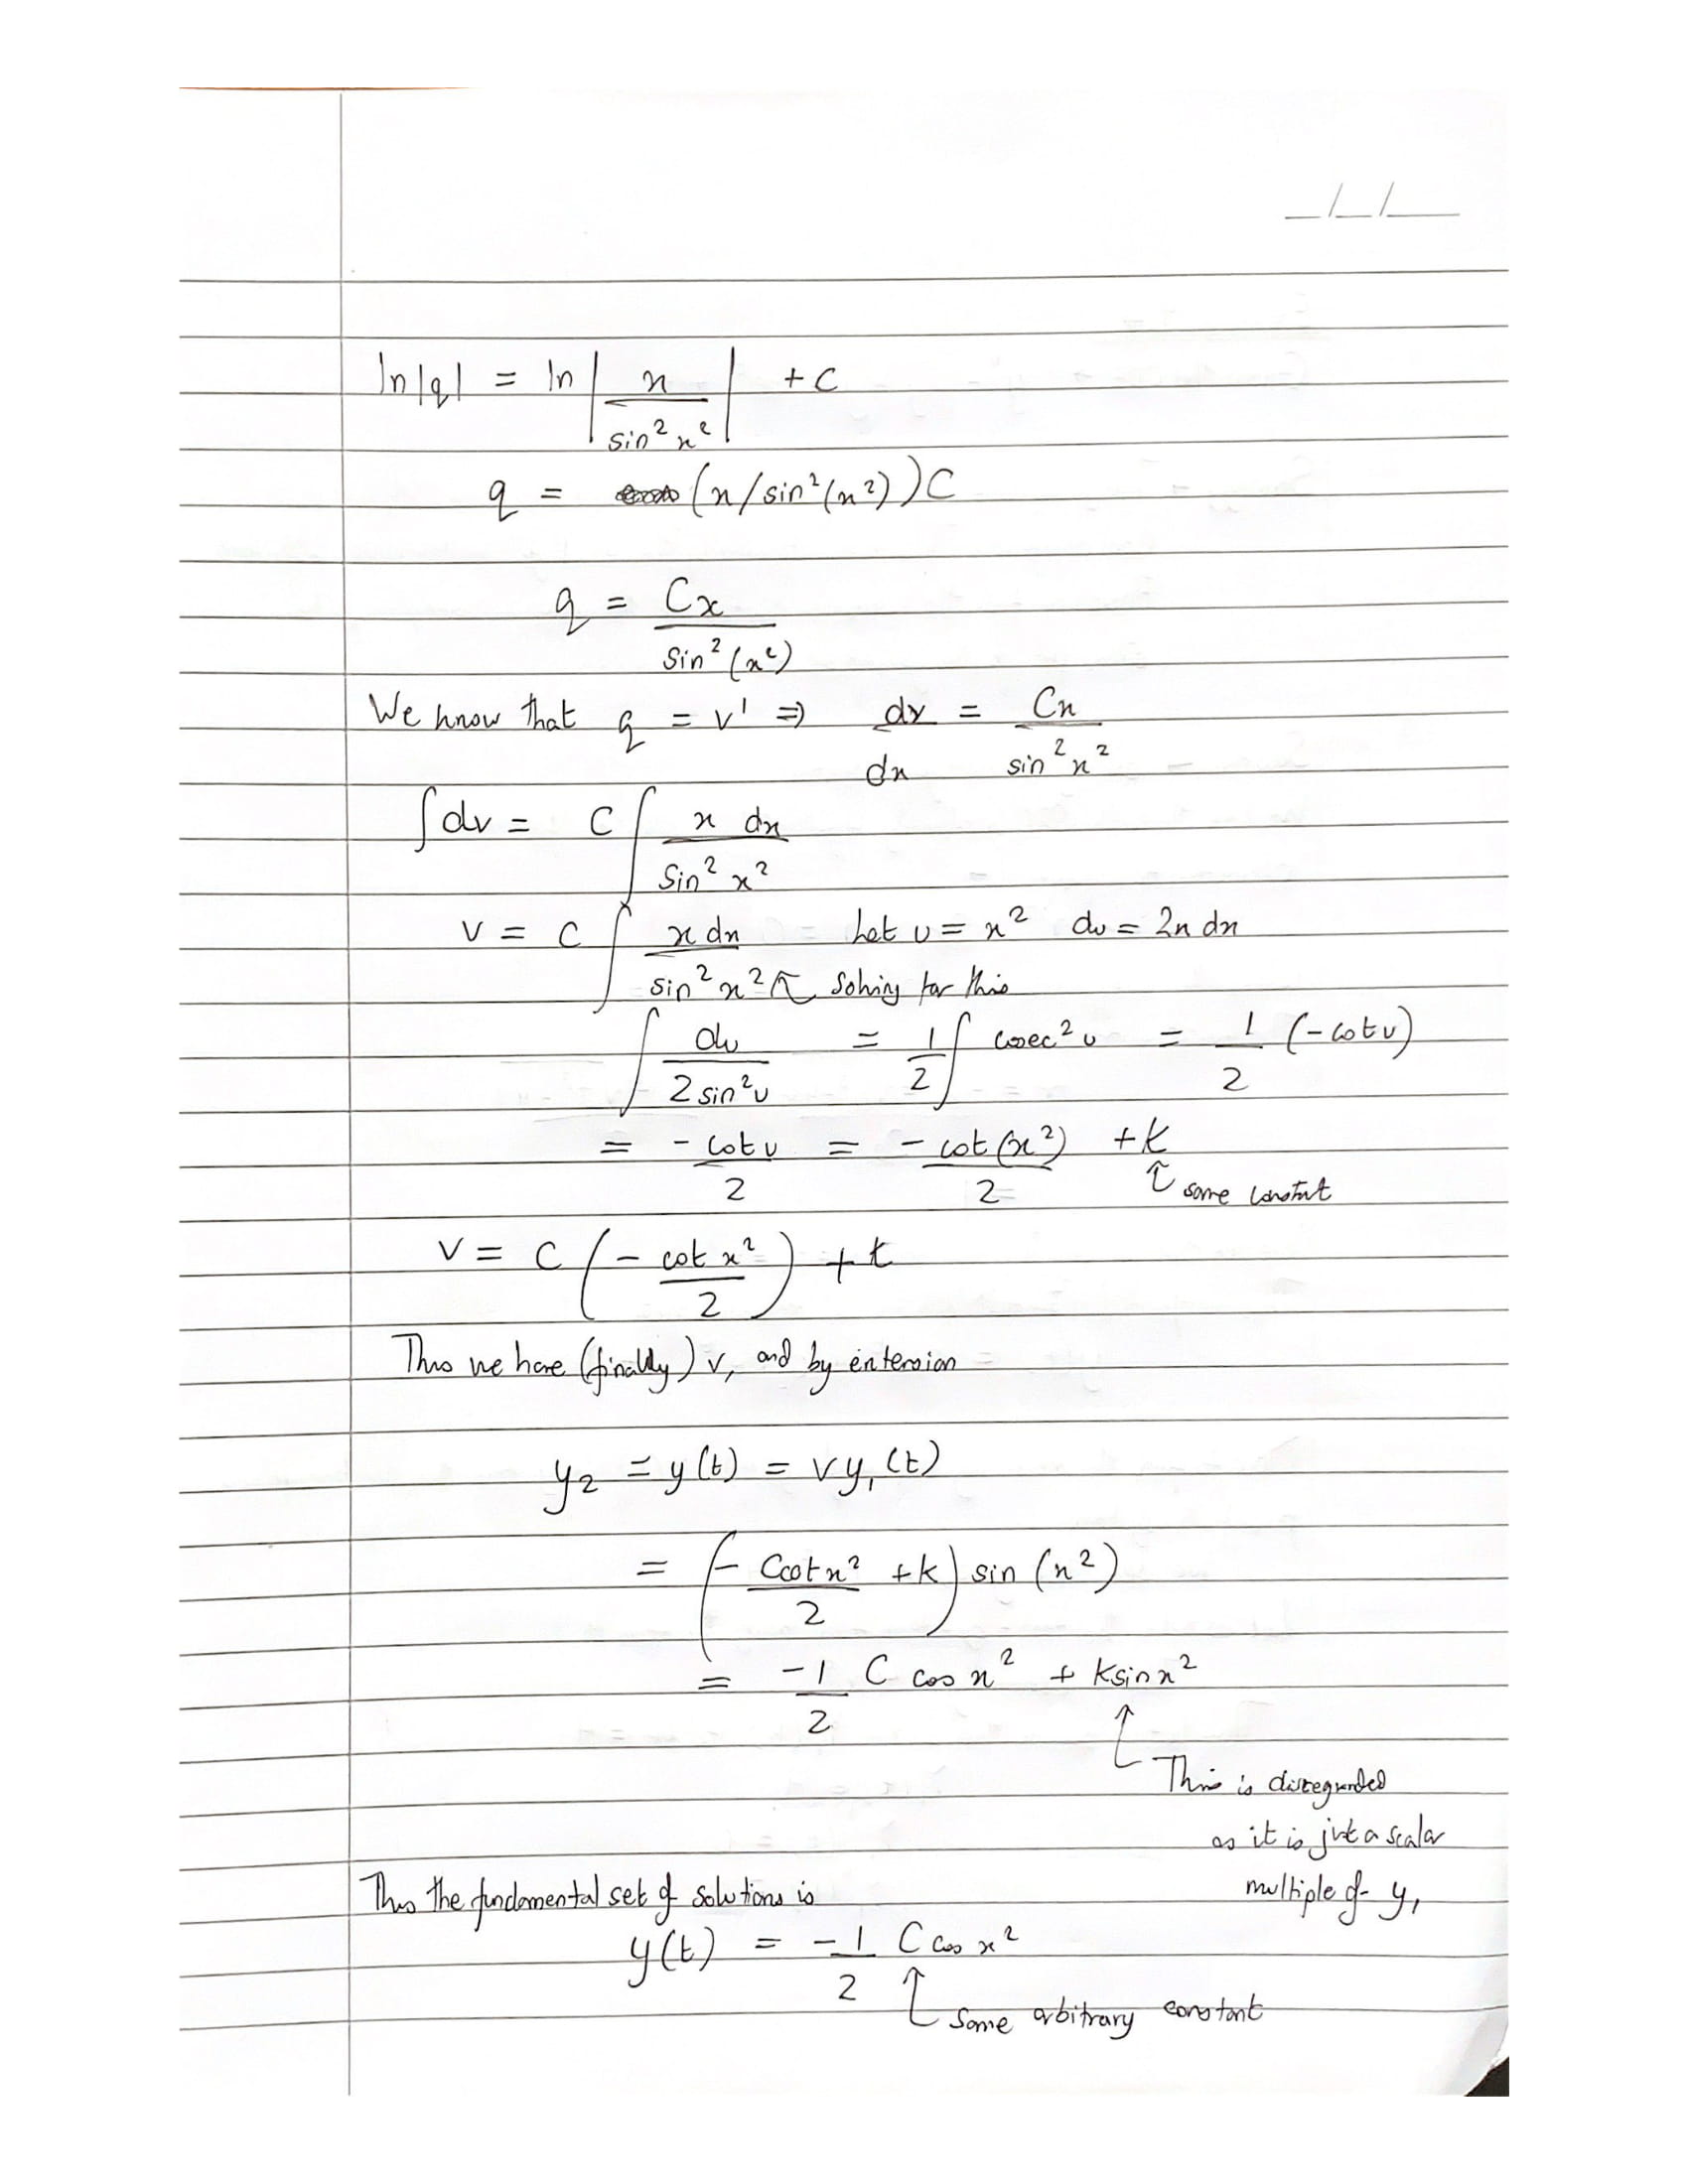 _/_/__
ln|q| = ln | x / sin² x² | + C
q = (x/sin²(x²))C
q = Cx / sin²(x²)
We know that q = v' ⇒ dv/dx = Cx / sin² x²
∫dv = C ∫ x dx / sin² x²
v = C ∫ x dx / sin² x² Let u = x² du = 2x dx
↖ Solving for this
∫ du / 2 sin² u = 1/2 ∫ cosec² u = 1/2 (-cot u)
= -cot u / 2 = -cot(x²) / 2 + k
↑ some constant
v = C ( -cot x² / 2 ) + k
Thus we have (finally) v, and by extension
y₂ = y(t) = v y₁(t)
= ( - C cot x² / 2 + k ) sin (x²)
= -1/2 C cos x² + k sin x²
↑ This is disregarded
as it is just a scalar
multiple of y₁
Thus the fundamental set of solutions is
y(t) = -1/2 C cos x²
↑ Some arbitrary constant